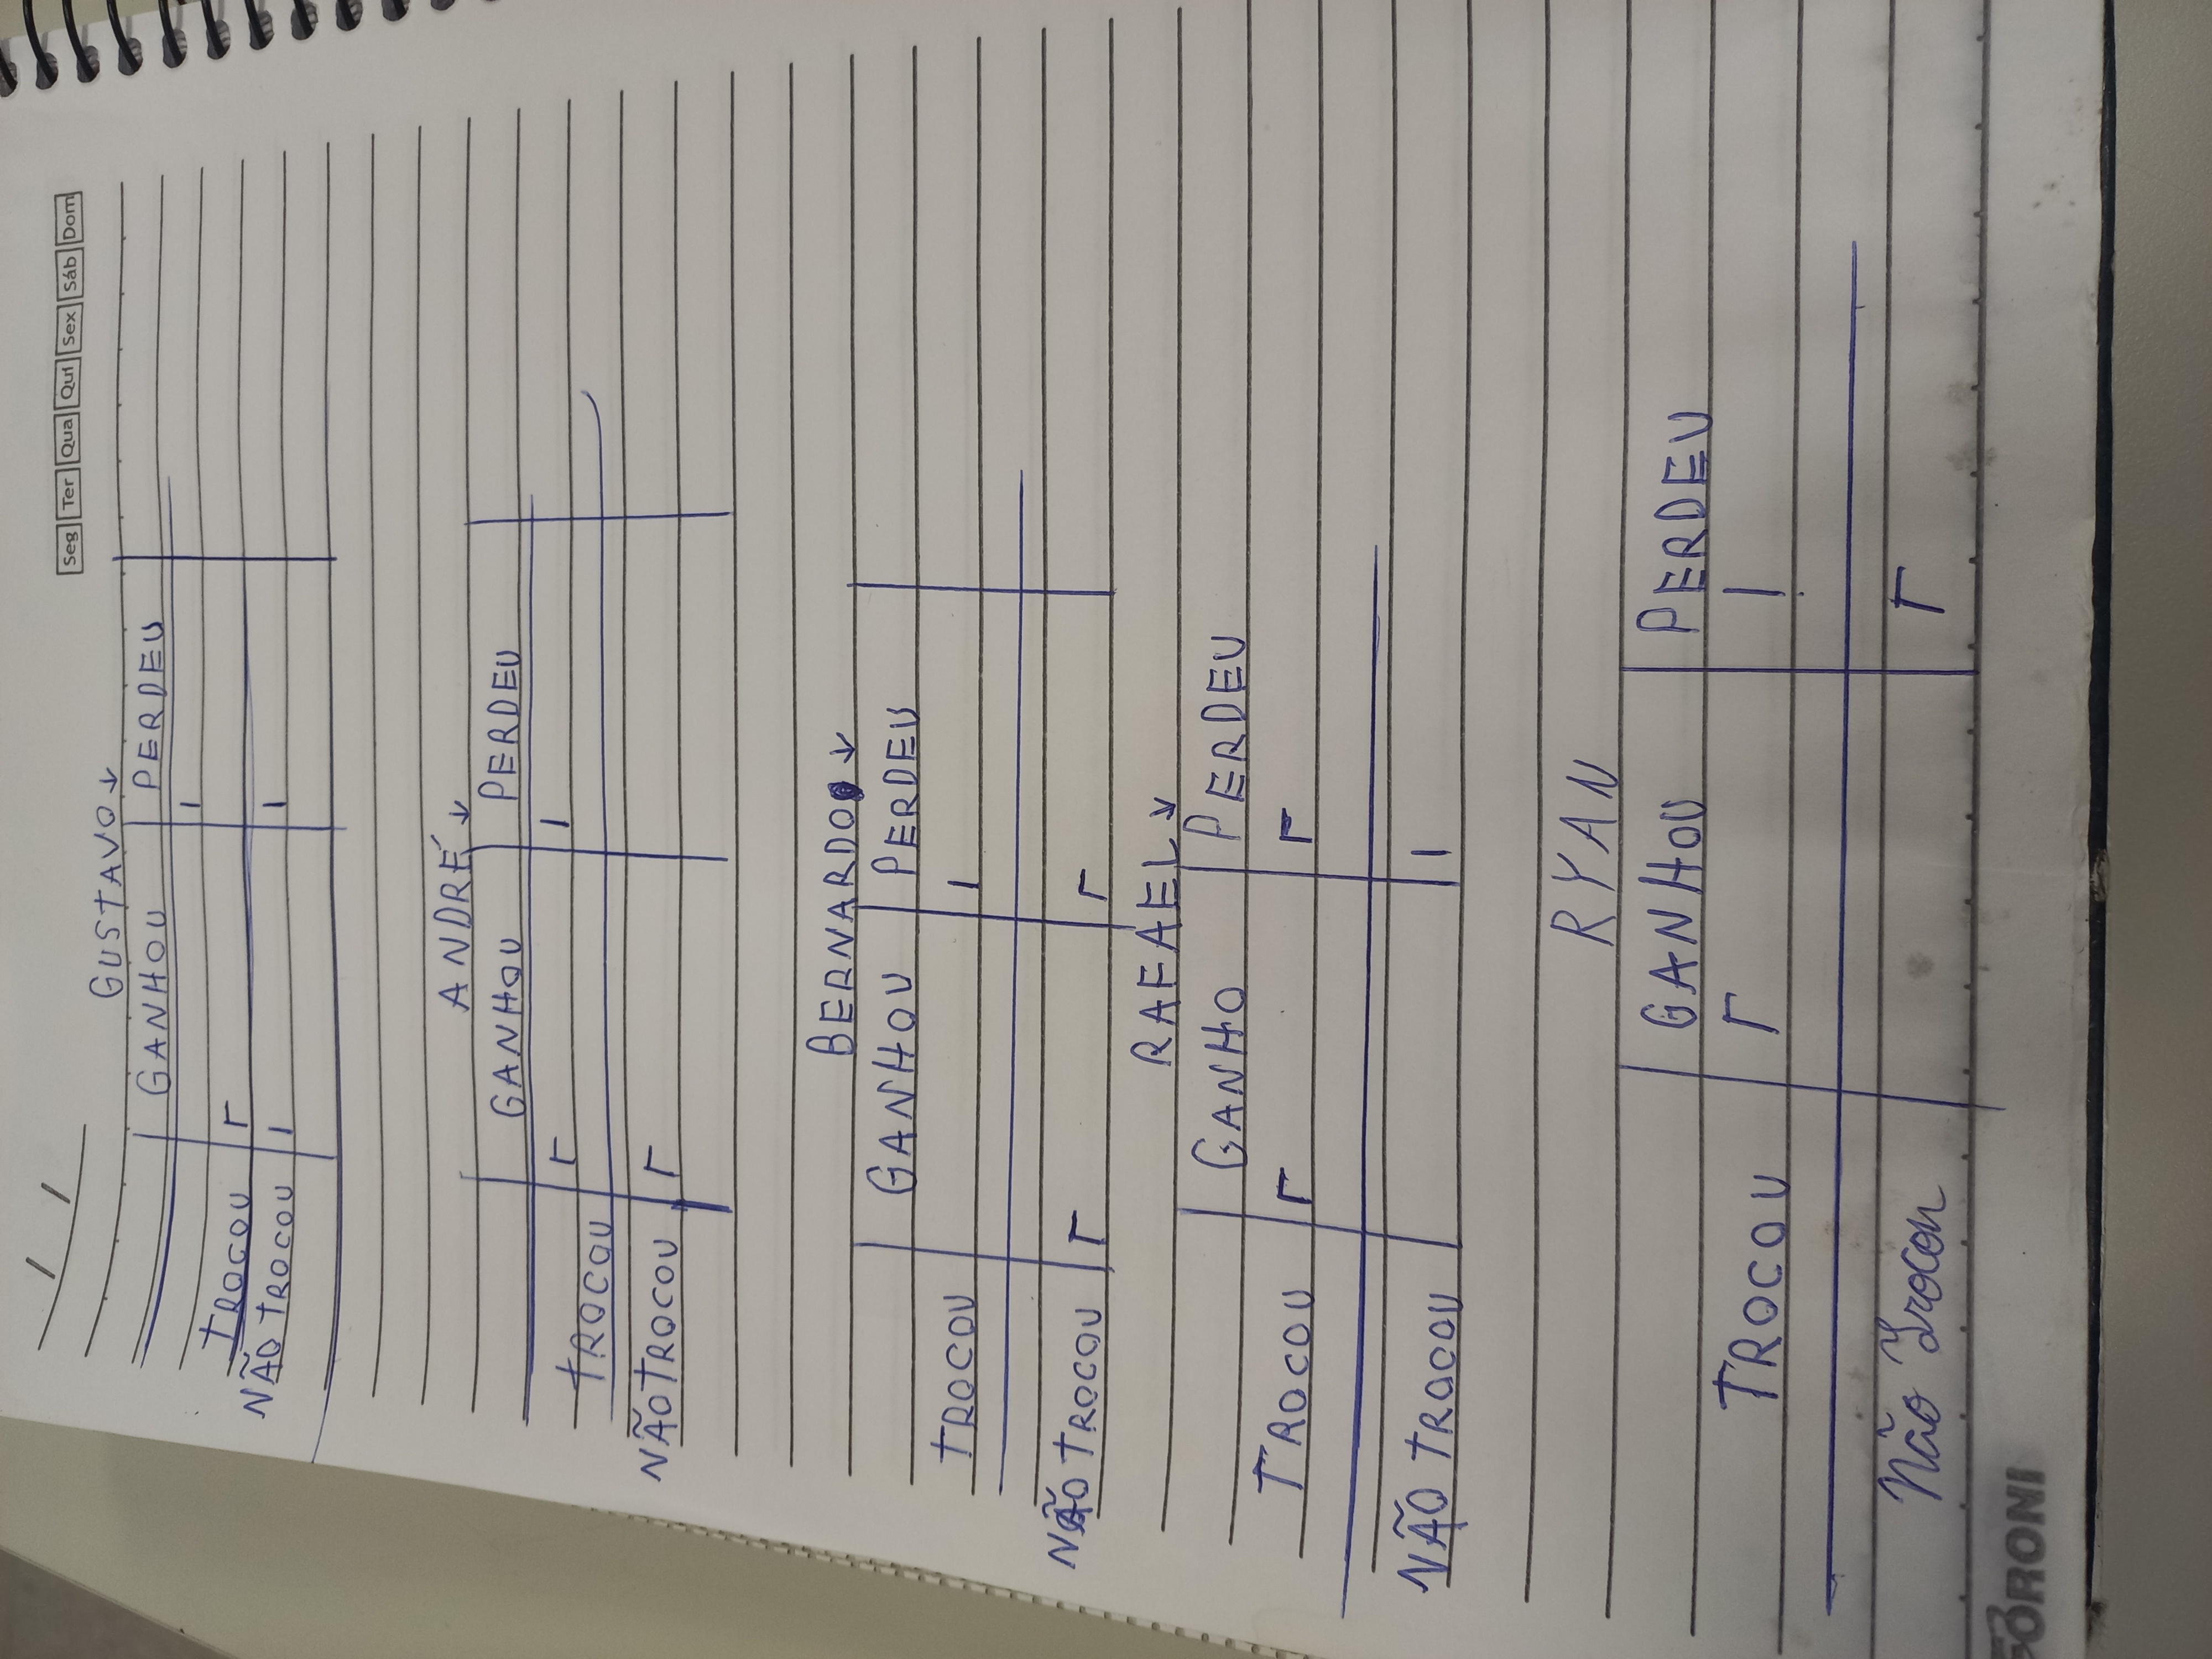 / /
Seg Ter Qua Qui Sex Sáb Dom
GUSTAVO ↓
GANHOU PERDEU
TROCOU
NÃO TROCOU
ANDRÉ ↓
GANHOU PERDEU
TROCOU
NÃO TROCOU
BERNARDO ↓
GANHOU PERDEU
TROCOU
NÃO TROCOU
RAFAEL ↓
GANHO PERDEU
TROCOU
NÃO TROCOU
RYAN
GANHOU PERDEU
TROCOU
Não Trocou
FORONI